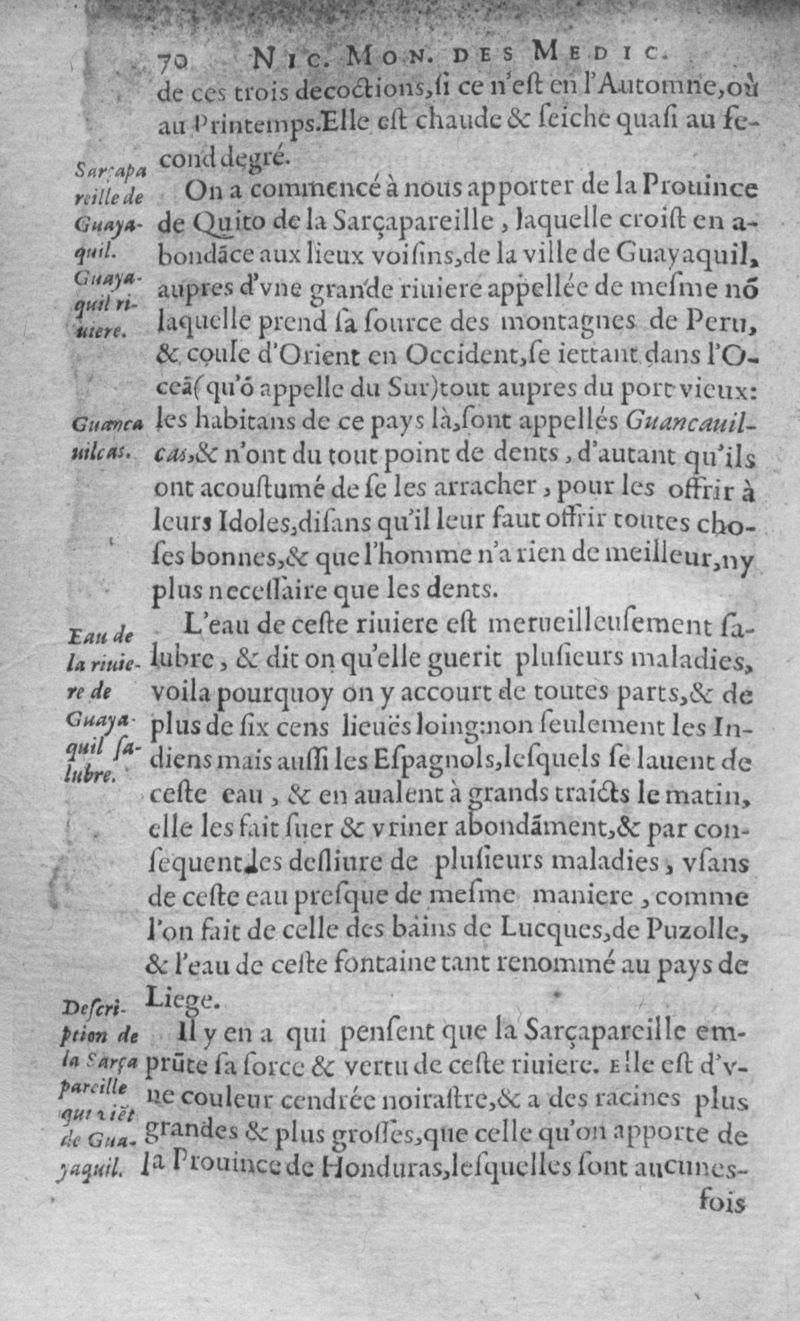 70 NIC. MON. DES MEDIC.
de ces trois decoctions,ſi ce n'eſt en l'Automne,où
au Printemps.Elle eſt chaude & ſeiche quaſi au ſe-
cond degré.
Sarçapa
reille de
Guaya-
quil.
Guaya-
quil ri-
uiere.
On a commencé à nous apporter de la Prouince
de Quito de la Sarçapareille , laquelle croiſt en a-
bondãce aux lieux voiſins,de la ville de Guayaquil,
aupres d'vne grande riuiere appellée de meſme nõ
laquelle prend ſa ſource des montagnes de Peru,
& coule d'Orient en Occident,ſe iettant dans l'O-
ceã(qu'õ appelle du Sur)tout aupres du port vieux:
Guanca
uilcas.
les habitans de ce pays là,ſont appellés Guancauil-
cas,& n'ont du tout point de dents , d'autant qu'ils
ont acouſtumé de ſe les arracher , pour les offrir à
leurs Idoles,diſans qu'il leur faut offrir toutes cho-
ſes bonnes,& que l'homme n'a rien de meilleur,ny
plus neceſſaire que les dents.
Eau de
la riuie-
re de
Guaya-
quil ſa-
lubre.
L'eau de ceſte riuiere eſt merueilleuſement ſa-
lubre , & dit on qu'elle guerit pluſieurs maladies,
voila pourquoy on y accourt de toutes parts,& de
plus de ſix cens lieuës loing:non ſeulement les In-
diens mais auſſi les Eſpagnols,leſquels ſe lauent de
ceſte eau , & en aualent à grands traicts le matin,
elle les fait ſuer & vriner abondãment,& par con-
ſequent les deſliure de pluſieurs maladies , vſans
de ceſte eau preſque de meſme maniere , comme
l'on fait de celle des bains de Lucques,de Puzolle,
& l'eau de ceſte fontaine tant renommé au pays de
Liege.
Deſcri-
ption de
la Sarça
pareille
qui viẽt
de Gua-
yaquil.
Il y en a qui penſent que la Sarçapareille em-
prũte ſa force & vertu de ceſte riuiere. Elle eſt d'v-
ne couleur cendrée noiraſtre,& a des racines plus
grandes & plus groſſes,que celle qu'on apporte de
la Prouince de Honduras,leſquelles ſont aucunes-
fois